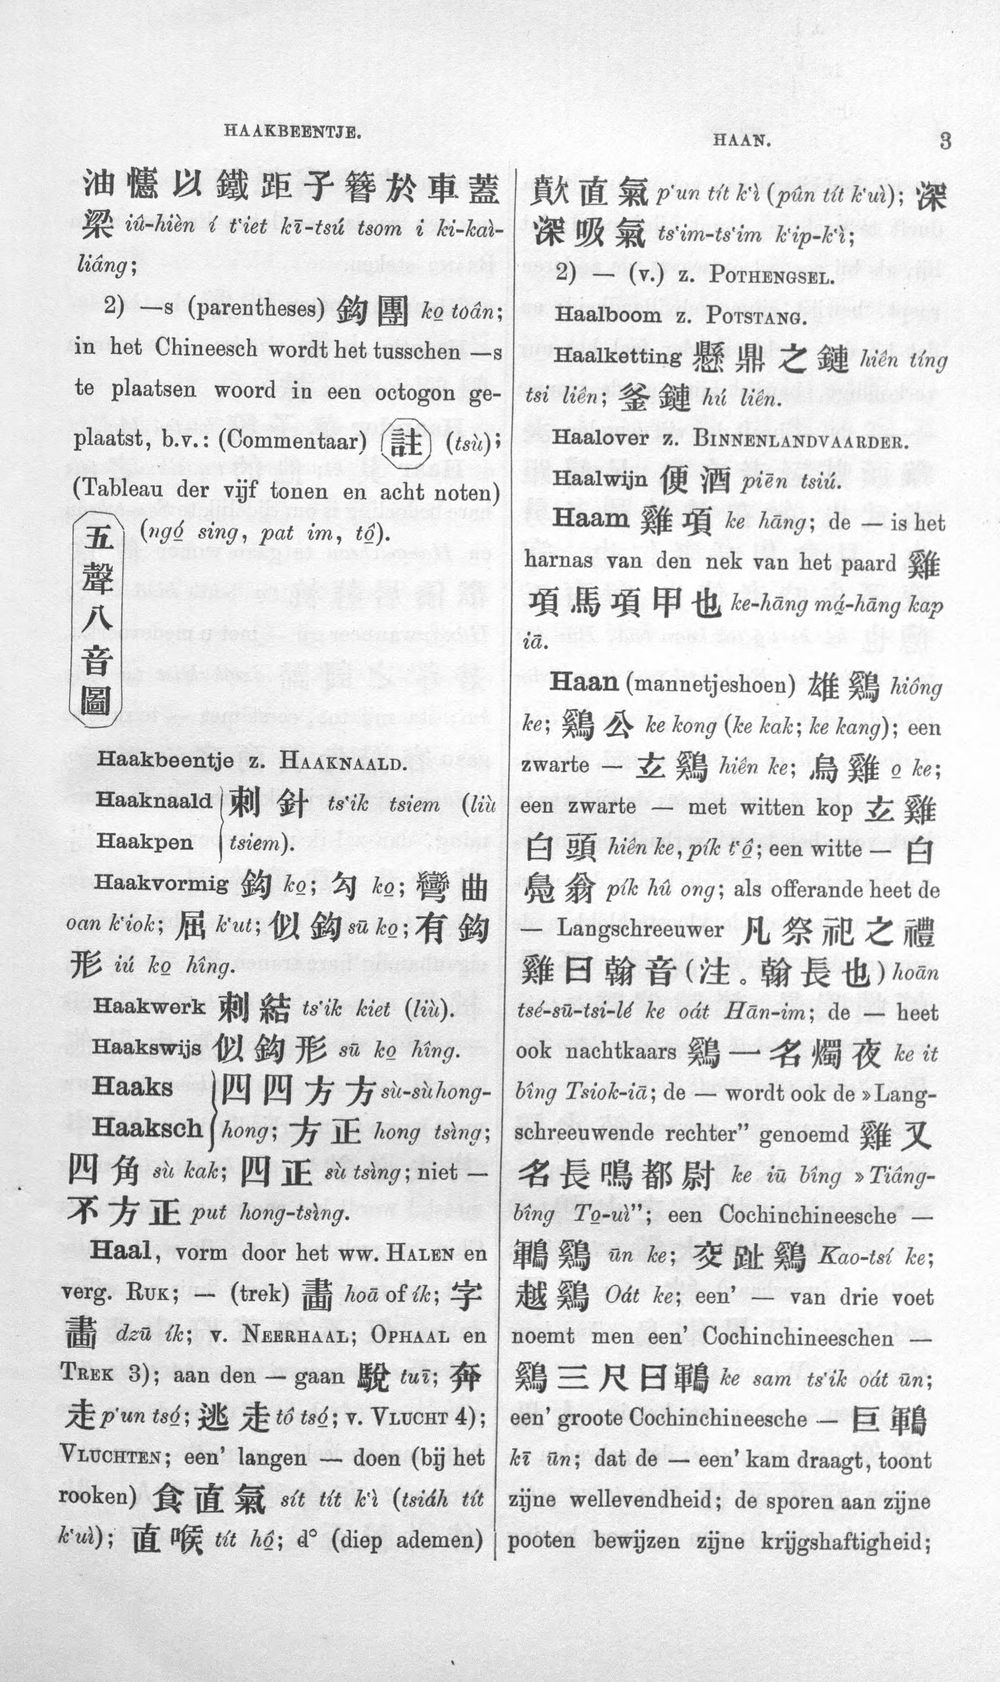 HAAKBEENTJE.
HAAN.
3
油幰以鐵距子簪於車蓋
梁 iû-hièn í t‘iet kī-tsú tsom i ki-kaì-
liâng;
2) —s (parentheses) 鈎團 ko̱ toân;
in het Chineesch wordt het tusschen —s
te plaatsen woord in een octogon ge-
plaatst, b.v.: (Commentaar) 註 (tsù);
(Tableau der vijf tonen en acht noten)
五聲八音圖
(ngó̱ sing, pat im, tô̱).
Haakbeentje z. HAAKNAALD.
Haaknaald 刺針 ts‘ik tsiem (liù
Haakpen tsiem).
Haakvormig 鈎 ko̱; 勾 ko̱; 彎曲
oan k‘iok; 屈 k‘ut; 似鈎 sū ko̱; 有鈎
形 iú ko̱ hîng.
Haakwerk 刺結 ts‘ik kiet (liù).
Haakswijs 似鈎形 sū ko̱ hîng.
Haaks 四四方方 sù-sù hong-
Haaksch hong; 方正 hong tsìng;
四角 sù kak; 四正 sù tsìng; niet —
不方正 put hong-tsìng.
Haal, vorm door het ww. HALEN en
verg. RUK; — (trek) 畫 hoā of ík; 字
畫 dzū ík; v. NEERHAAL; OPHAAL en
TREK 3); aan den — gaan 駾 tuī; 奔
走 p‘un tsó̱; 逃走 tô tsó̱; v. VLUCHT 4);
VLUCHTEN; een’ langen — doen (bij het
rooken) 食直氣 sít tít k‘ì (tsiáh tít
k‘uì); 直喉 tít hô̱; d° (diep ademen)
歕直氣 p‘un tít k‘ì (pûn tít k‘uì); 深
深吸氣 ts‘im-ts‘im k‘ip-k‘ì;
2) — (v.) z. POTHENGSEL.
Haalboom z. POTSTANG.
Haalketting 懸鼎之鏈 hiên tíng
tsi liên; 釜鏈 hú liên.
Haalover z. BINNENLANDVAARDER.
Haalwijn 便酒 piēn tsiú.
Haam 雞項 ke hāng; de — is het
harnas van den nek van het paard 雞
項馬項甲也 ke-hāng má̱-hāng kap
iā.
Haan (mannetjeshoen) 雄鷄 hiông
ke; 鷄公 ke kong (ke kak; ke kang); een
zwarte — 玄鷄 hiên ke; 烏雞 o̱ ke;
een zwarte — met witten kop 玄雞
白頭 hiên ke, pík t‘ô̱; een witte — 白
鳧翁 pík hû ong; als offerande heet de
— Langschreeuwer 凡祭祀之禮
雞曰翰音(注。翰長也) hoān
tsé-sū-tsi-lé ke oát Hān-im; de — heet
ook nachtkaars 鷄一名燭夜 ke it
bîng Tsiok-iā; de — wordt ook de »Lang-
schreeuwende rechter” genoemd 雞又
名長鳴都尉 ke iū bîng »Tiâng-
bîng To̱-uì”; een Cochinchineesche —
鶤鷄 ūn ke; 交趾鷄 Kao-tsí ke;
越鷄 Oát ke; een’ — van drie voet
noemt men een’ Cochinchineeschen —
鷄三尺曰鶤 ke sam ts‘ik oát ūn;
een’ groote Cochinchineesche — 巨鶤
kī ūn; dat de — een’ kam draagt, toont
zijne wellevendheid; de sporen aan zijne
pooten bewijzen zijne krijgshaftigheid;